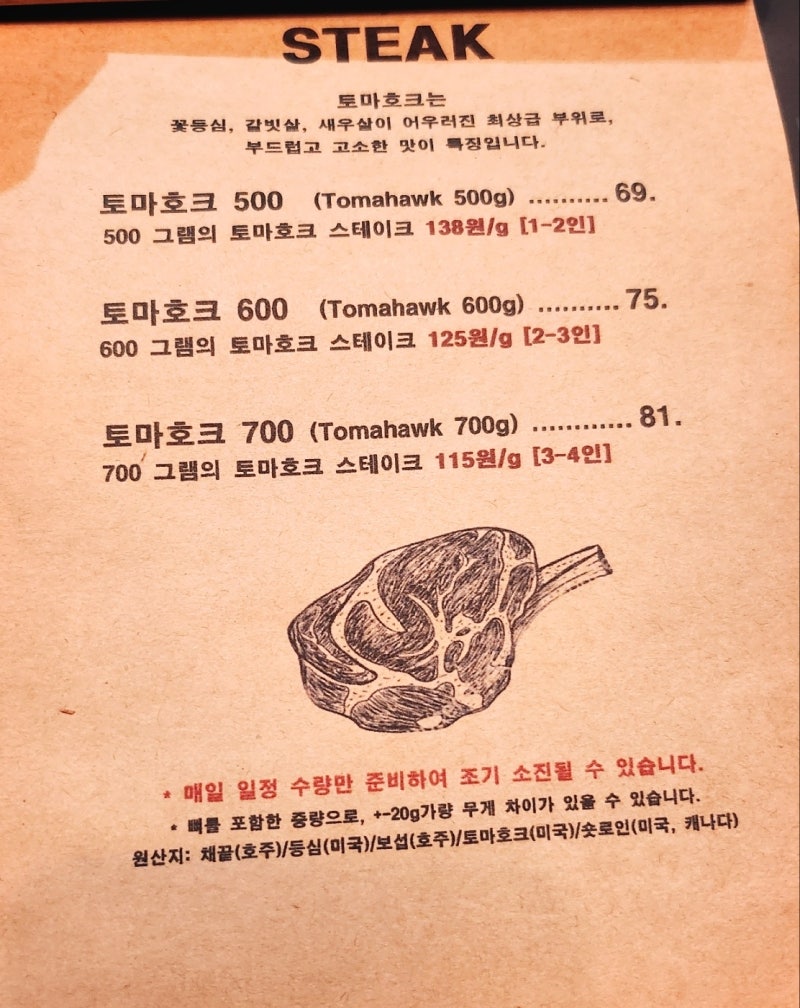 STEAK
토마호크는
꽃등심, 갈빗살, 새우살이 어우러진 최상급 부위로,
부드럽고 고소한 맛이 특징입니다.
토마호크 500 (Tomahawk 500g) .......... 69.
500 그램의 토마호크 스테이크 138원/g [1-2인]
토마호크 600 (Tomahawk 600g) .......... 75.
600 그램의 토마호크 스테이크 125원/g [2-3인]
토마호크 700 (Tomahawk 700g) ............ 81.
700 그램의 토마호크 스테이크 115원/g [3-4인]
* 매일 일정 수량만 준비하여 조기 소진될 수 있습니다.
* 뼈를 포함한 중량으로, +-20g가량 무게 차이가 있을 수 있습니다.
원산지: 채끝(호주)/등심(미국)/보섭(호주)/토마호크(미국)/숏로인(미국, 캐나다)